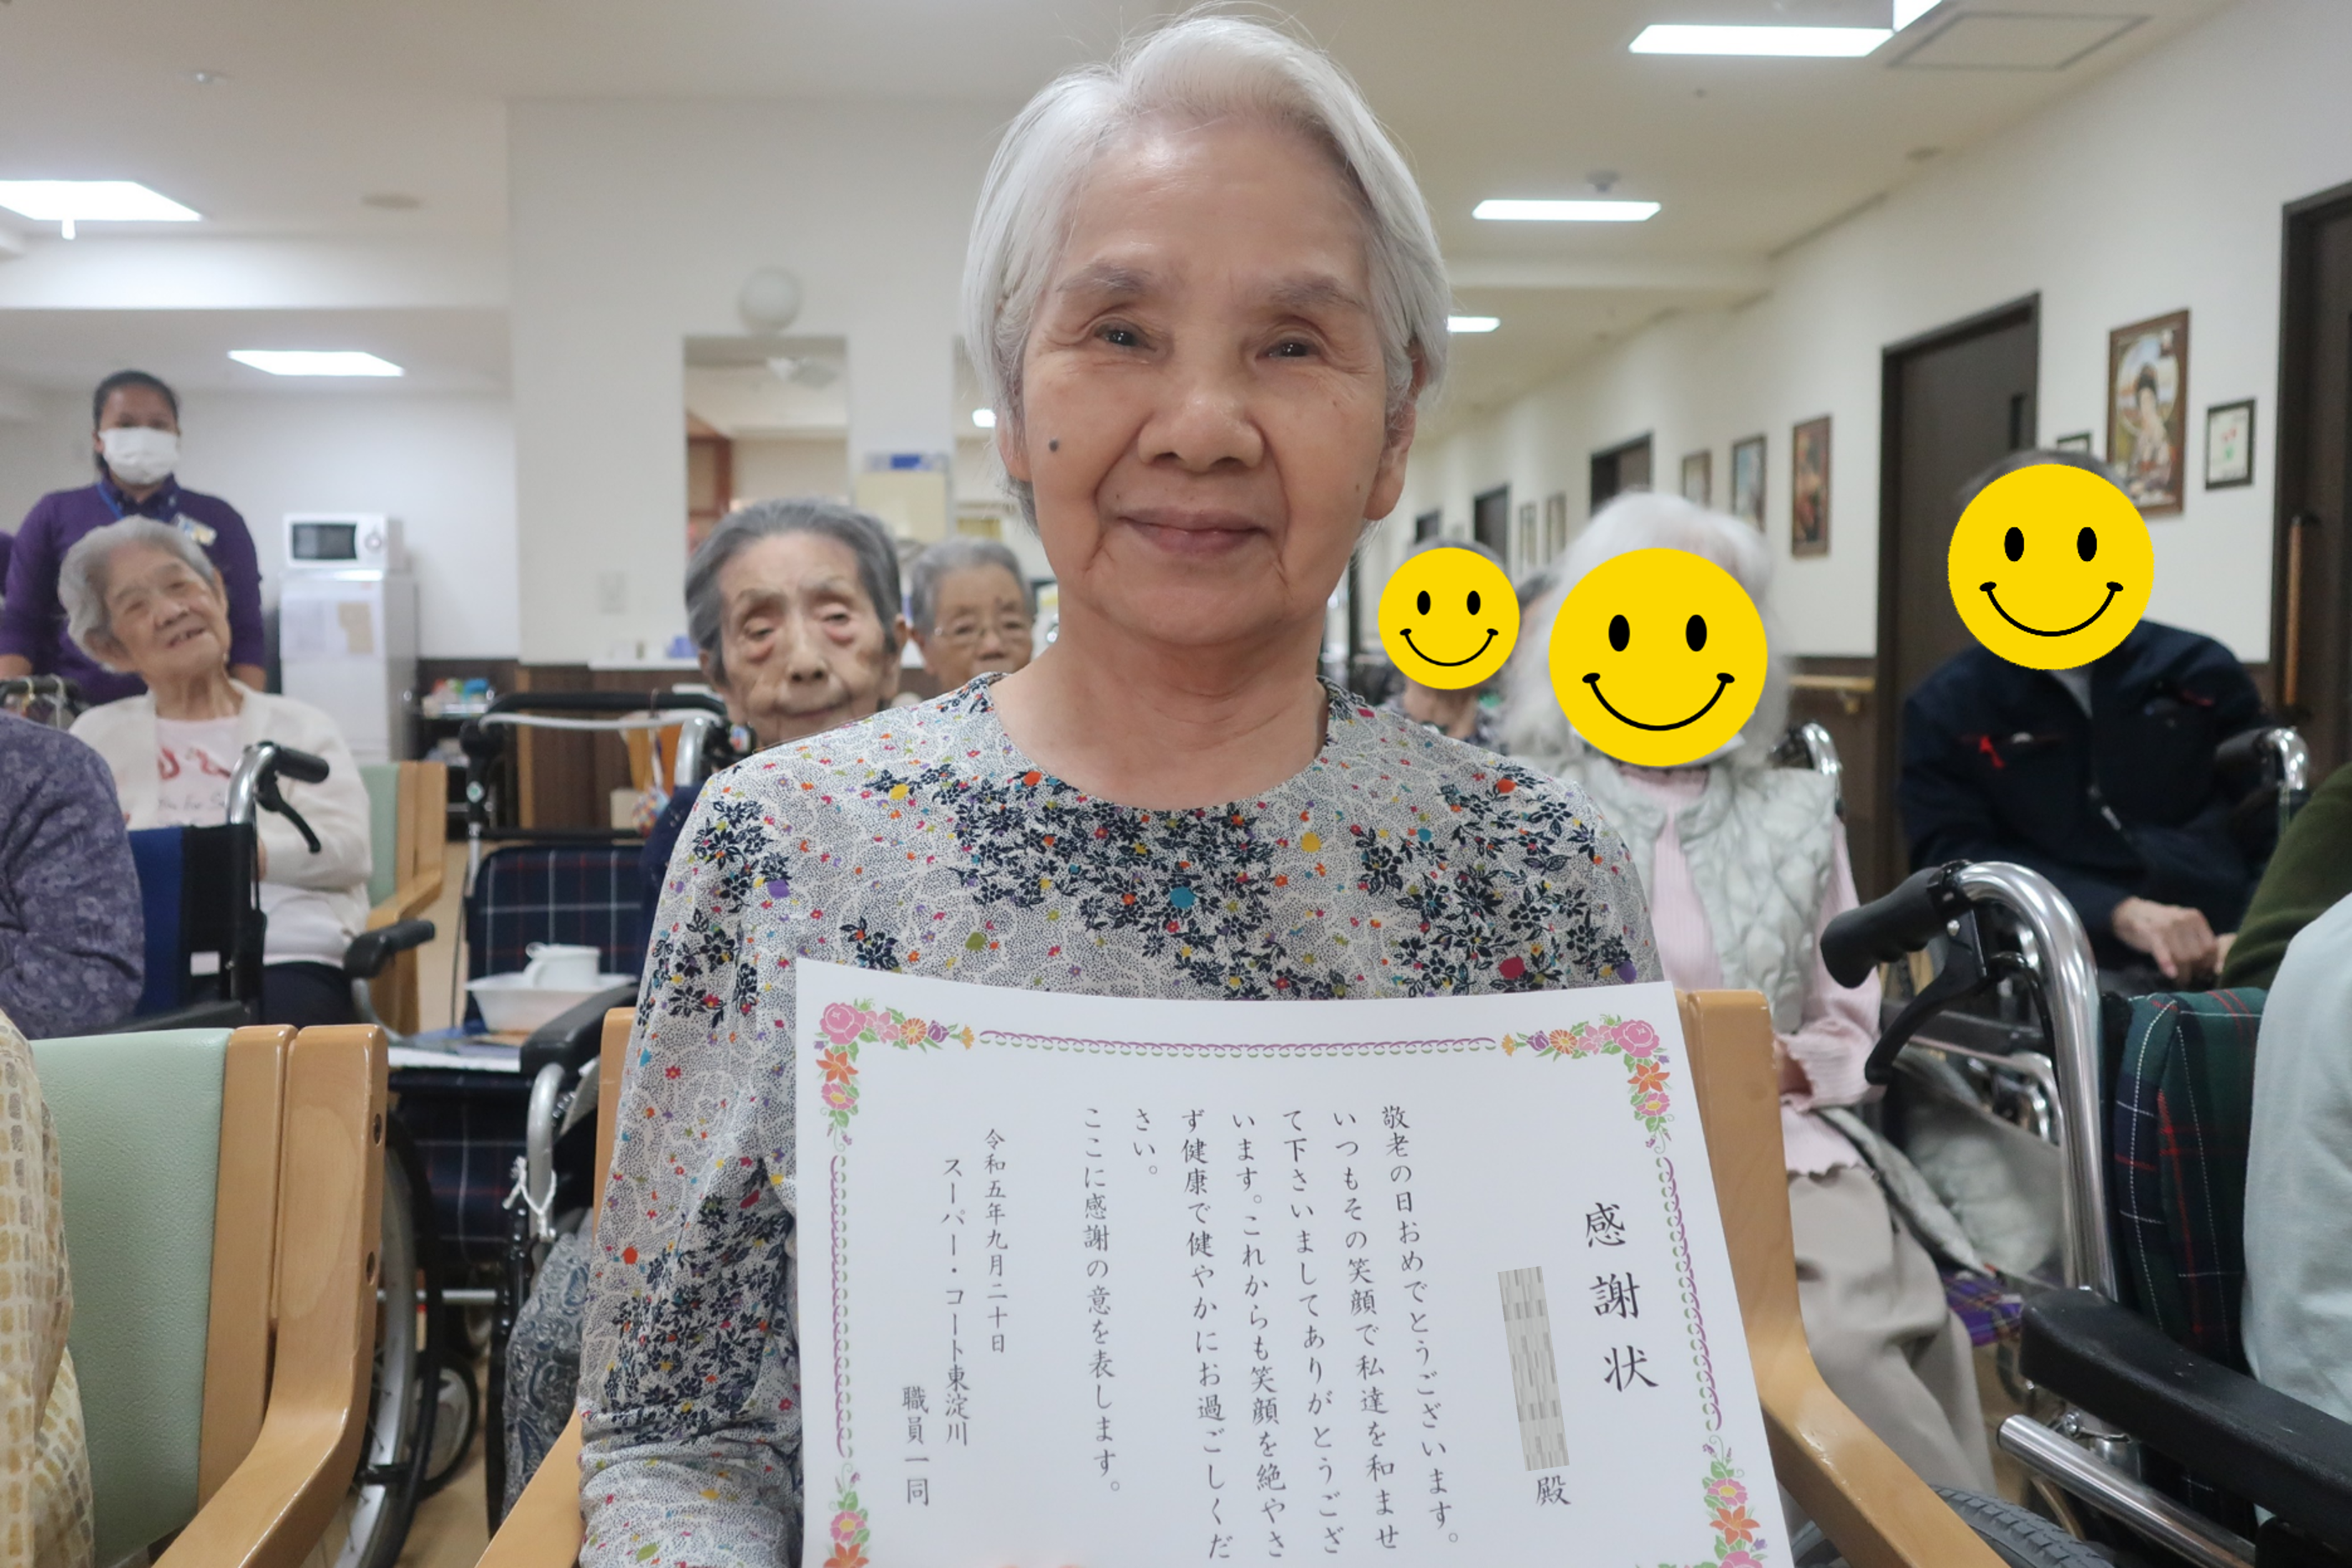 感謝状
殿
敬老の日おめでとうございます。
いつもその笑顔で私達を和ませ
て下さいましてありがとうござ
います。これからも笑顔を絶やさ
ず健康で健やかにお過ごしくだ
さい。
ここに感謝の意を表します。
令和五年九月二十日
スーパー・コート東淀川
職員一同